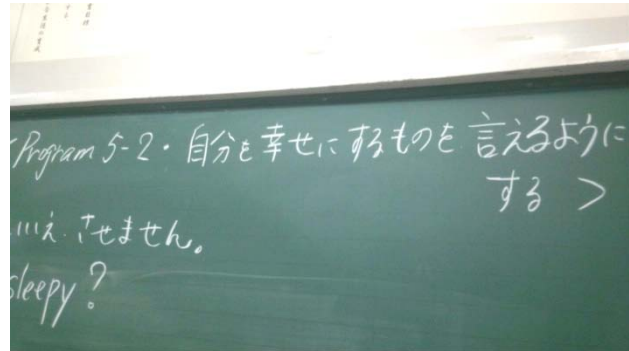 Program 5-2・自分を幸せにするものを言えるように
する >
いいえ、させません。
sleepy?